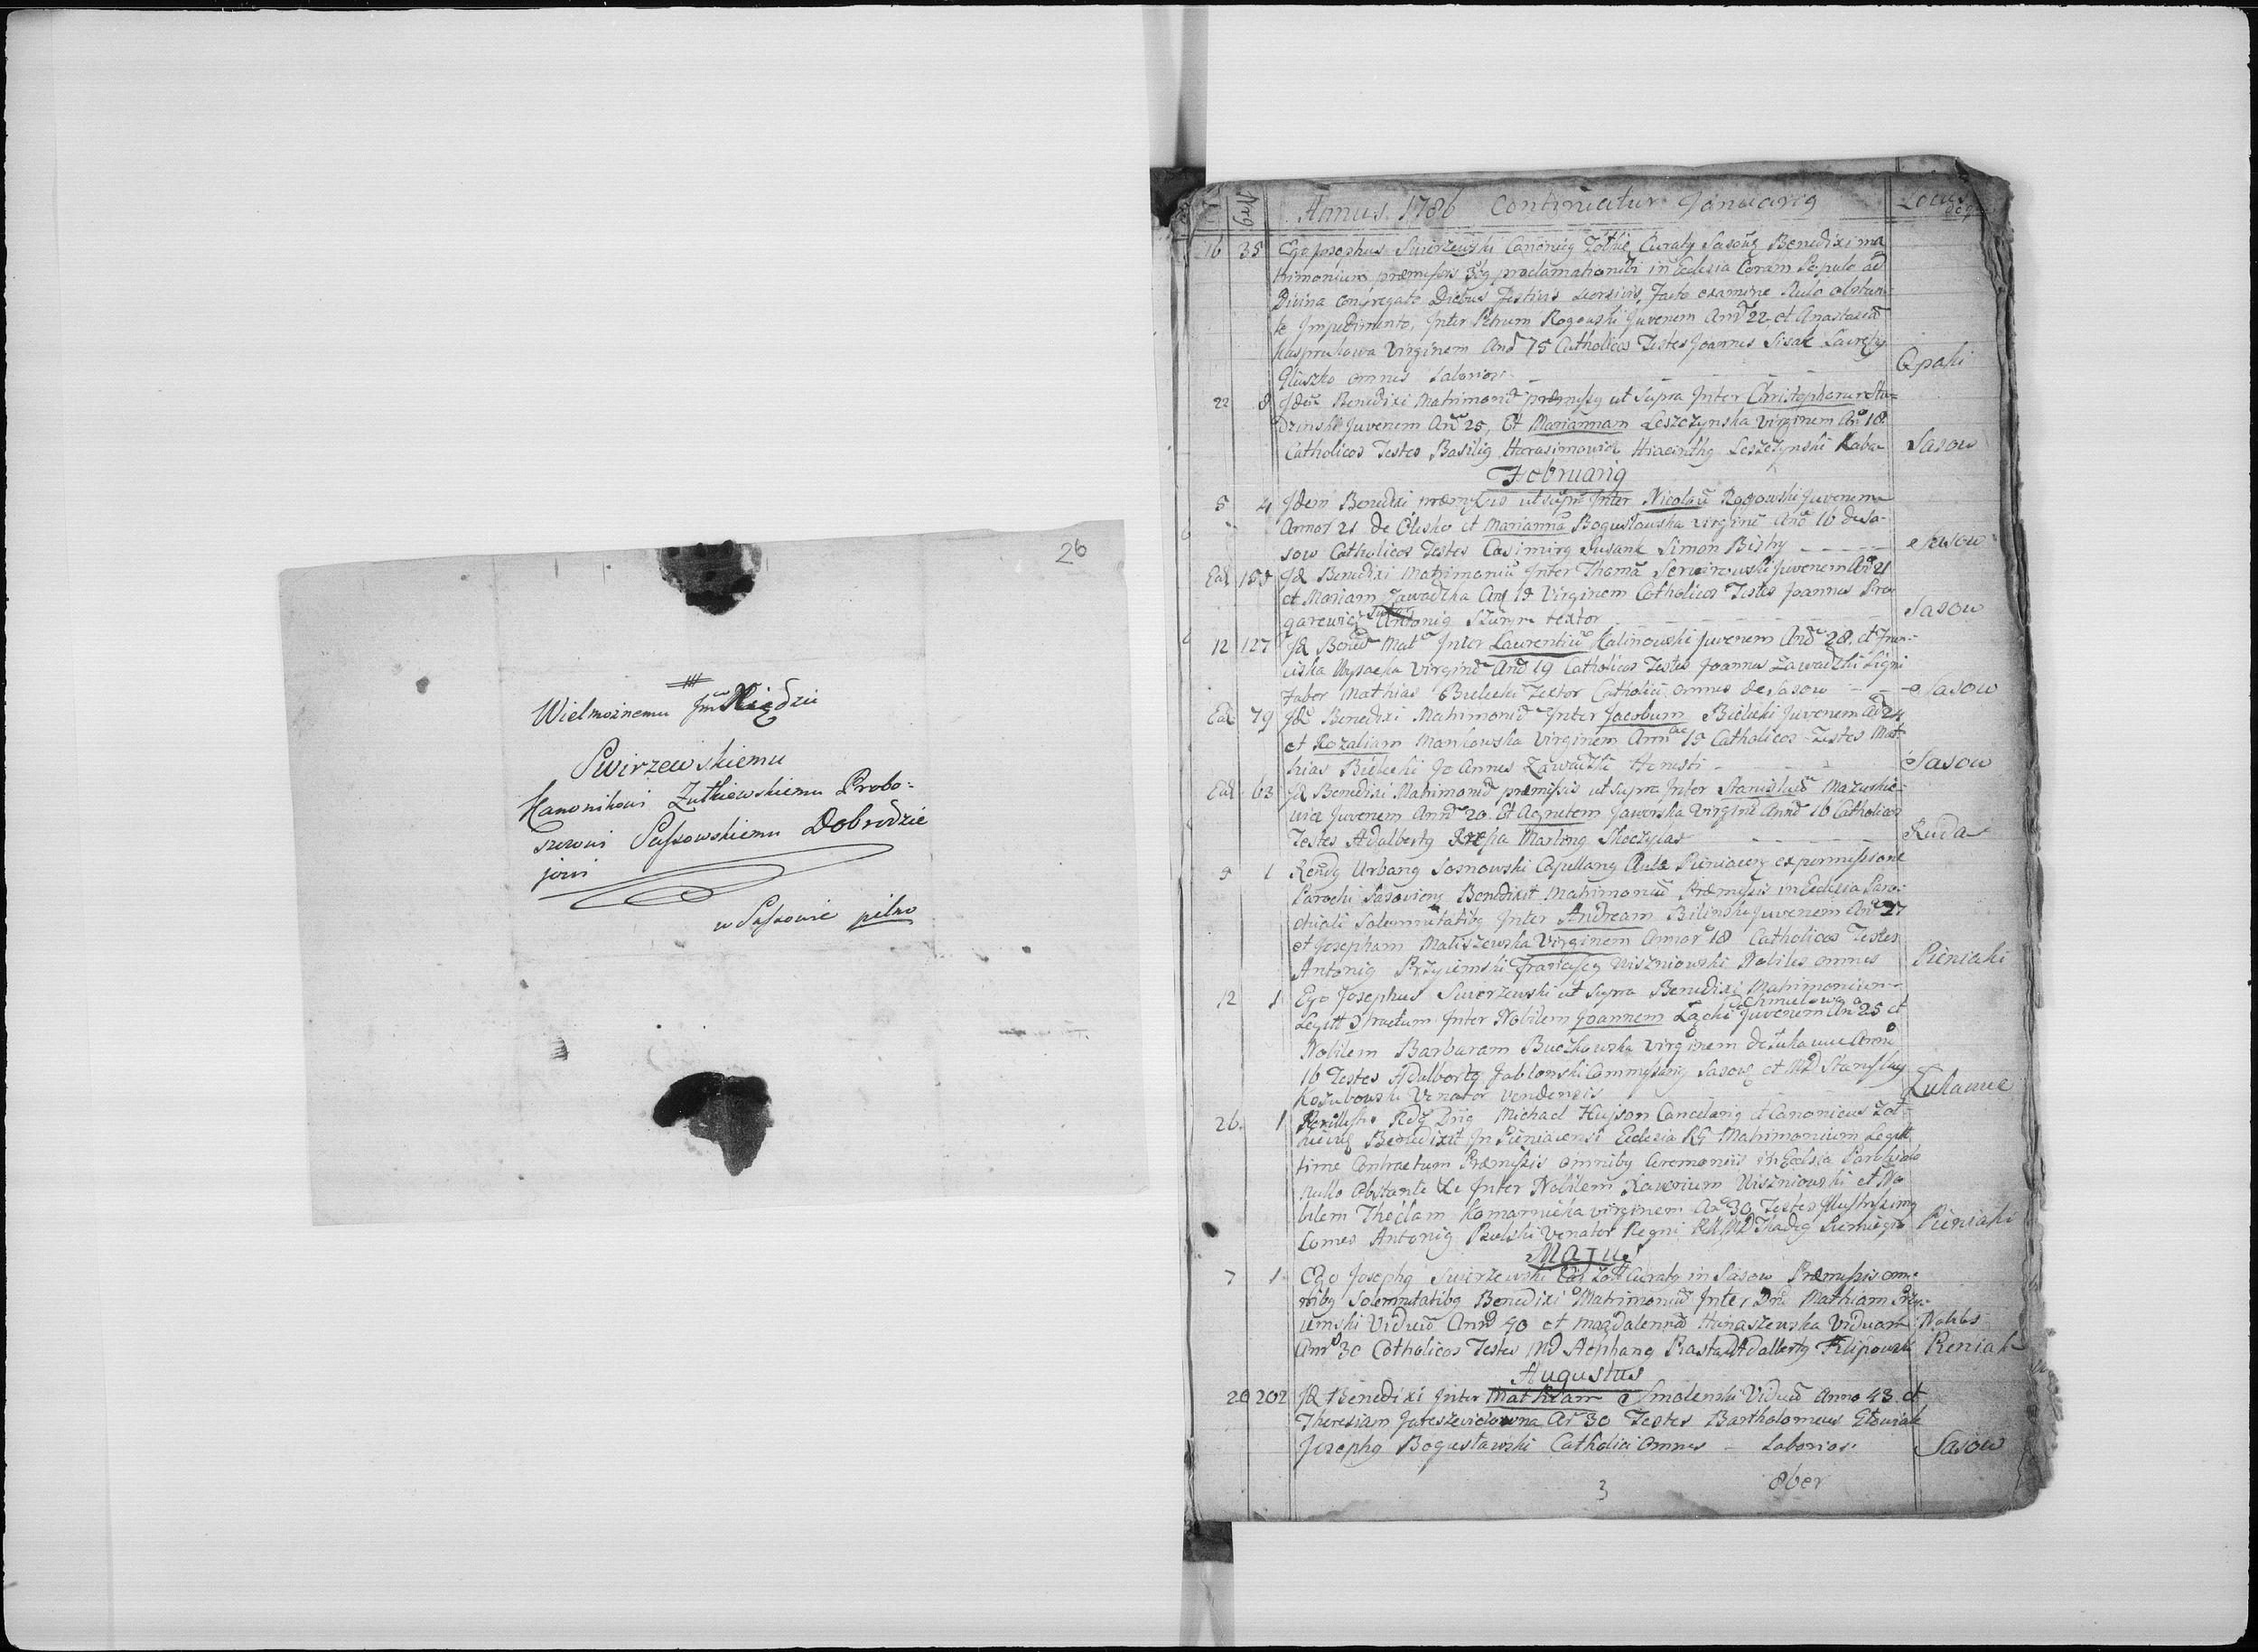 26
Wielmożnemu Jmć Xiędzu
Swirzewskiemu
Kanonikowi Żułkiewskiemu Probo=
szczowi Sassowskiemu Dobrodzie
jowi
w Sassowie pilno
Nrg
Annus 1786 Continuatur Januarig
Locus
16 35 Ego Josephus Swirzewski Canonicg Żołkie Curatg Sasoűs Benedixi ma
trimonium præmissis 3bg proclamationibi in Eclesia Coram Populo ad
Divina congregato Diebus Festivis seorsivis, Facto examine Nulo obstan=
te Impedimento, Inter Petrum Rogowski Juvenem Annr 22, et Anastasia
Kaspruhowa Virginem Ann 75 Catholicos Testes Joannes Sisak
Gluszko omnes Laborios
Opaki
22 8 Idem Benedixi Matrimoniũ præmissg ut Supra Inter Christophorum Stu=
dzinski Juvenem Anr 25, Et Mariannam Leszczynska Virginem An 18
Catholicos Testes Basilig Harasimowicz Hiacinthg Leszczynski
Sasow
Februarig
5 4 Idem Benedixi præmissis ut supra Inter Nicolaũ Rogowski Juvenem
Annor 21 de Olesko et Mariannã Bogusławska virginẽ Ann 16 de Sa-
sow Catholicos Testes Casimirg Susank Simon Bisky
Sasow
Ead 155 Id Benedixi Matrimoniũ Inter Thomã Juvenem An 21
et Mariam Zawadzka Ang 19 Virginem Catholicos Testes Joannes Pro
garewicz Sutor Antonig textor
Sasow
12 127 Id Bened Mat Inter Laurentiũ Kalinowski Juvenem And 28. et Fran-
ciska Wysocka Virginẽ And 19 Catholicos Testes Joannes Zawadzki Ligni
Faber Mathias Bielecki Textor Catholici omnes de Sasow
Sasow
Ead 79 Id Benedixi Matrimoniũ Inter Jacobum Bielecki Juvenem Ad 24
et Rozaliam Mankowska Virginem Ann 19 Catholicos Testes Mat
hias Bielecki Joannes Zawadzki Honesti
Sasow
Ead 63 Id Benedixi Matrimoniũ præmissis ut supra Inter Stanislaũ Mazurkie-
wicz Juvenem Annr 20. Et Agnetem Jaworska Virginẽ Annr 16 Catholicos
Testes Adalbertg Marting Skoczylas
Ruda
9 1 Rendg Urbang Sosnowski Capellang Aulæ Pieniacens ex permissione
Parochi Sasoviens Benedixit Matrimoniũ Præmissis in Eclesia Paro-
chiali Solemnitatibg Inter Andream Bilinski Juvenem Anr 27
et Josepham Matiszewska Virginem Annor 18 Catholicos Testes
Antonig Przyiemski Franciscg Wiszniowski Nobiles omnes
Pieniaki
12 1 Ego Josephus Swirzewski ut Supra Benedixi Matrimonium
Legitt Ctractum Inter Nobilem Joannem Łącki Juvenem An 25 et
Nobilem Barbaram Buczkowska Virginem de Łukawie Anno
16 Testes Adalbertg Jablonski Commissarig Sasow et MD Stanislag
Kozubowski Venator vendensis
Łukawie
26. 1 Perillstr Rdg Dng Michael Hujson Cancelarig et Canonicus Żoł=
kievi Benedixit In Pieniacensi Eclesia RG Matrimonium Legitt
time Contractum Præmissis omnibg Ceremoniis in Eclsia Parochiali
Nullo Obstante Inter Nobilem Xaverium Wiszniowski et No
bilem Theclam Komarnicka virginem An 30 Testes Illustrissimg
Comes Antonig Bielski Venator Regni MD Thadeg
Pieniaki
Majus
7 1 Ego Josephg Swirzewski Can Żołk Curatg in Sasow Præmissis om-
nibg Solemnitatibg Benedixi Matrimoniũ Inter Dnũ Mathiam Przy-
iemski Viduũ Ann 40 et Magdalennã Hanaszewska Viduam
Anr 30 Catholicos Testes MD Stephang Piasta Adalbertg Filipowski
Nobiles
Pieniak
Augustus
20 202 Id Benedixi Inter Mathiam Smolenski Viduũ Anno 43 et
Theresiam Jareszewiczowna An 30 Testes Bartholomeus
Josephg Bogusławski Catholici omnes Laborios:
Sasow
8ber
3